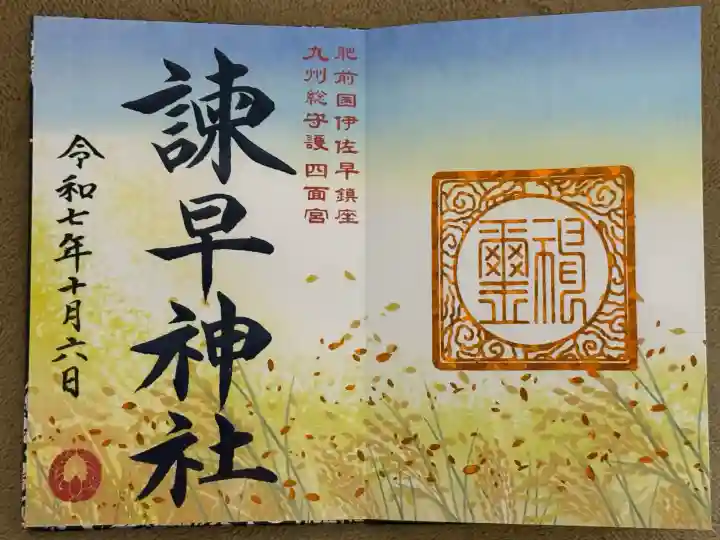 肥前国伊佐早鎮座
九州総守護 四面宮
諫早神社
令和七年十月六日